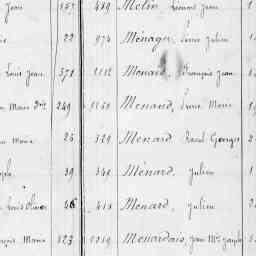 Jean 157 489 Melin, Jean 1
22 974 Ménager, Louis Julien
Louis Jean 371 1112 Menard, François Jean
Marie 249 1168 Menard, Louis Marie 1
Marie 25 329 Menard Raoul Georges 2
39 348 Ménard, Julien 1
Louis Olivier 46 418 Menard, Julien 2
Marie 323 1219 Menardais, Jean Mie Joseph 3